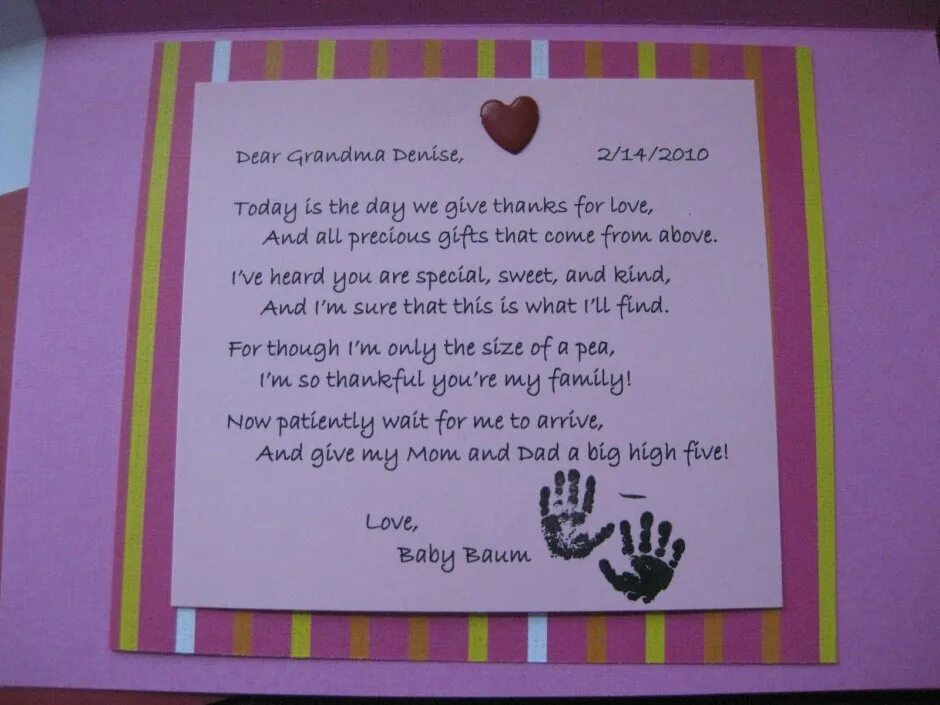 Dear Grandma Denise, 2/14/2010
Today is the day we give thanks for love,
And all precious gifts that come from above.
I've heard you are special, sweet, and kind,
And I'm sure that this is what I'll find.
For though I'm only the size of a pea,
I'm so thankful you're my family!
Now patiently wait for me to arrive,
And give my Mom and Dad a big high five!
Love,
Baby Baum